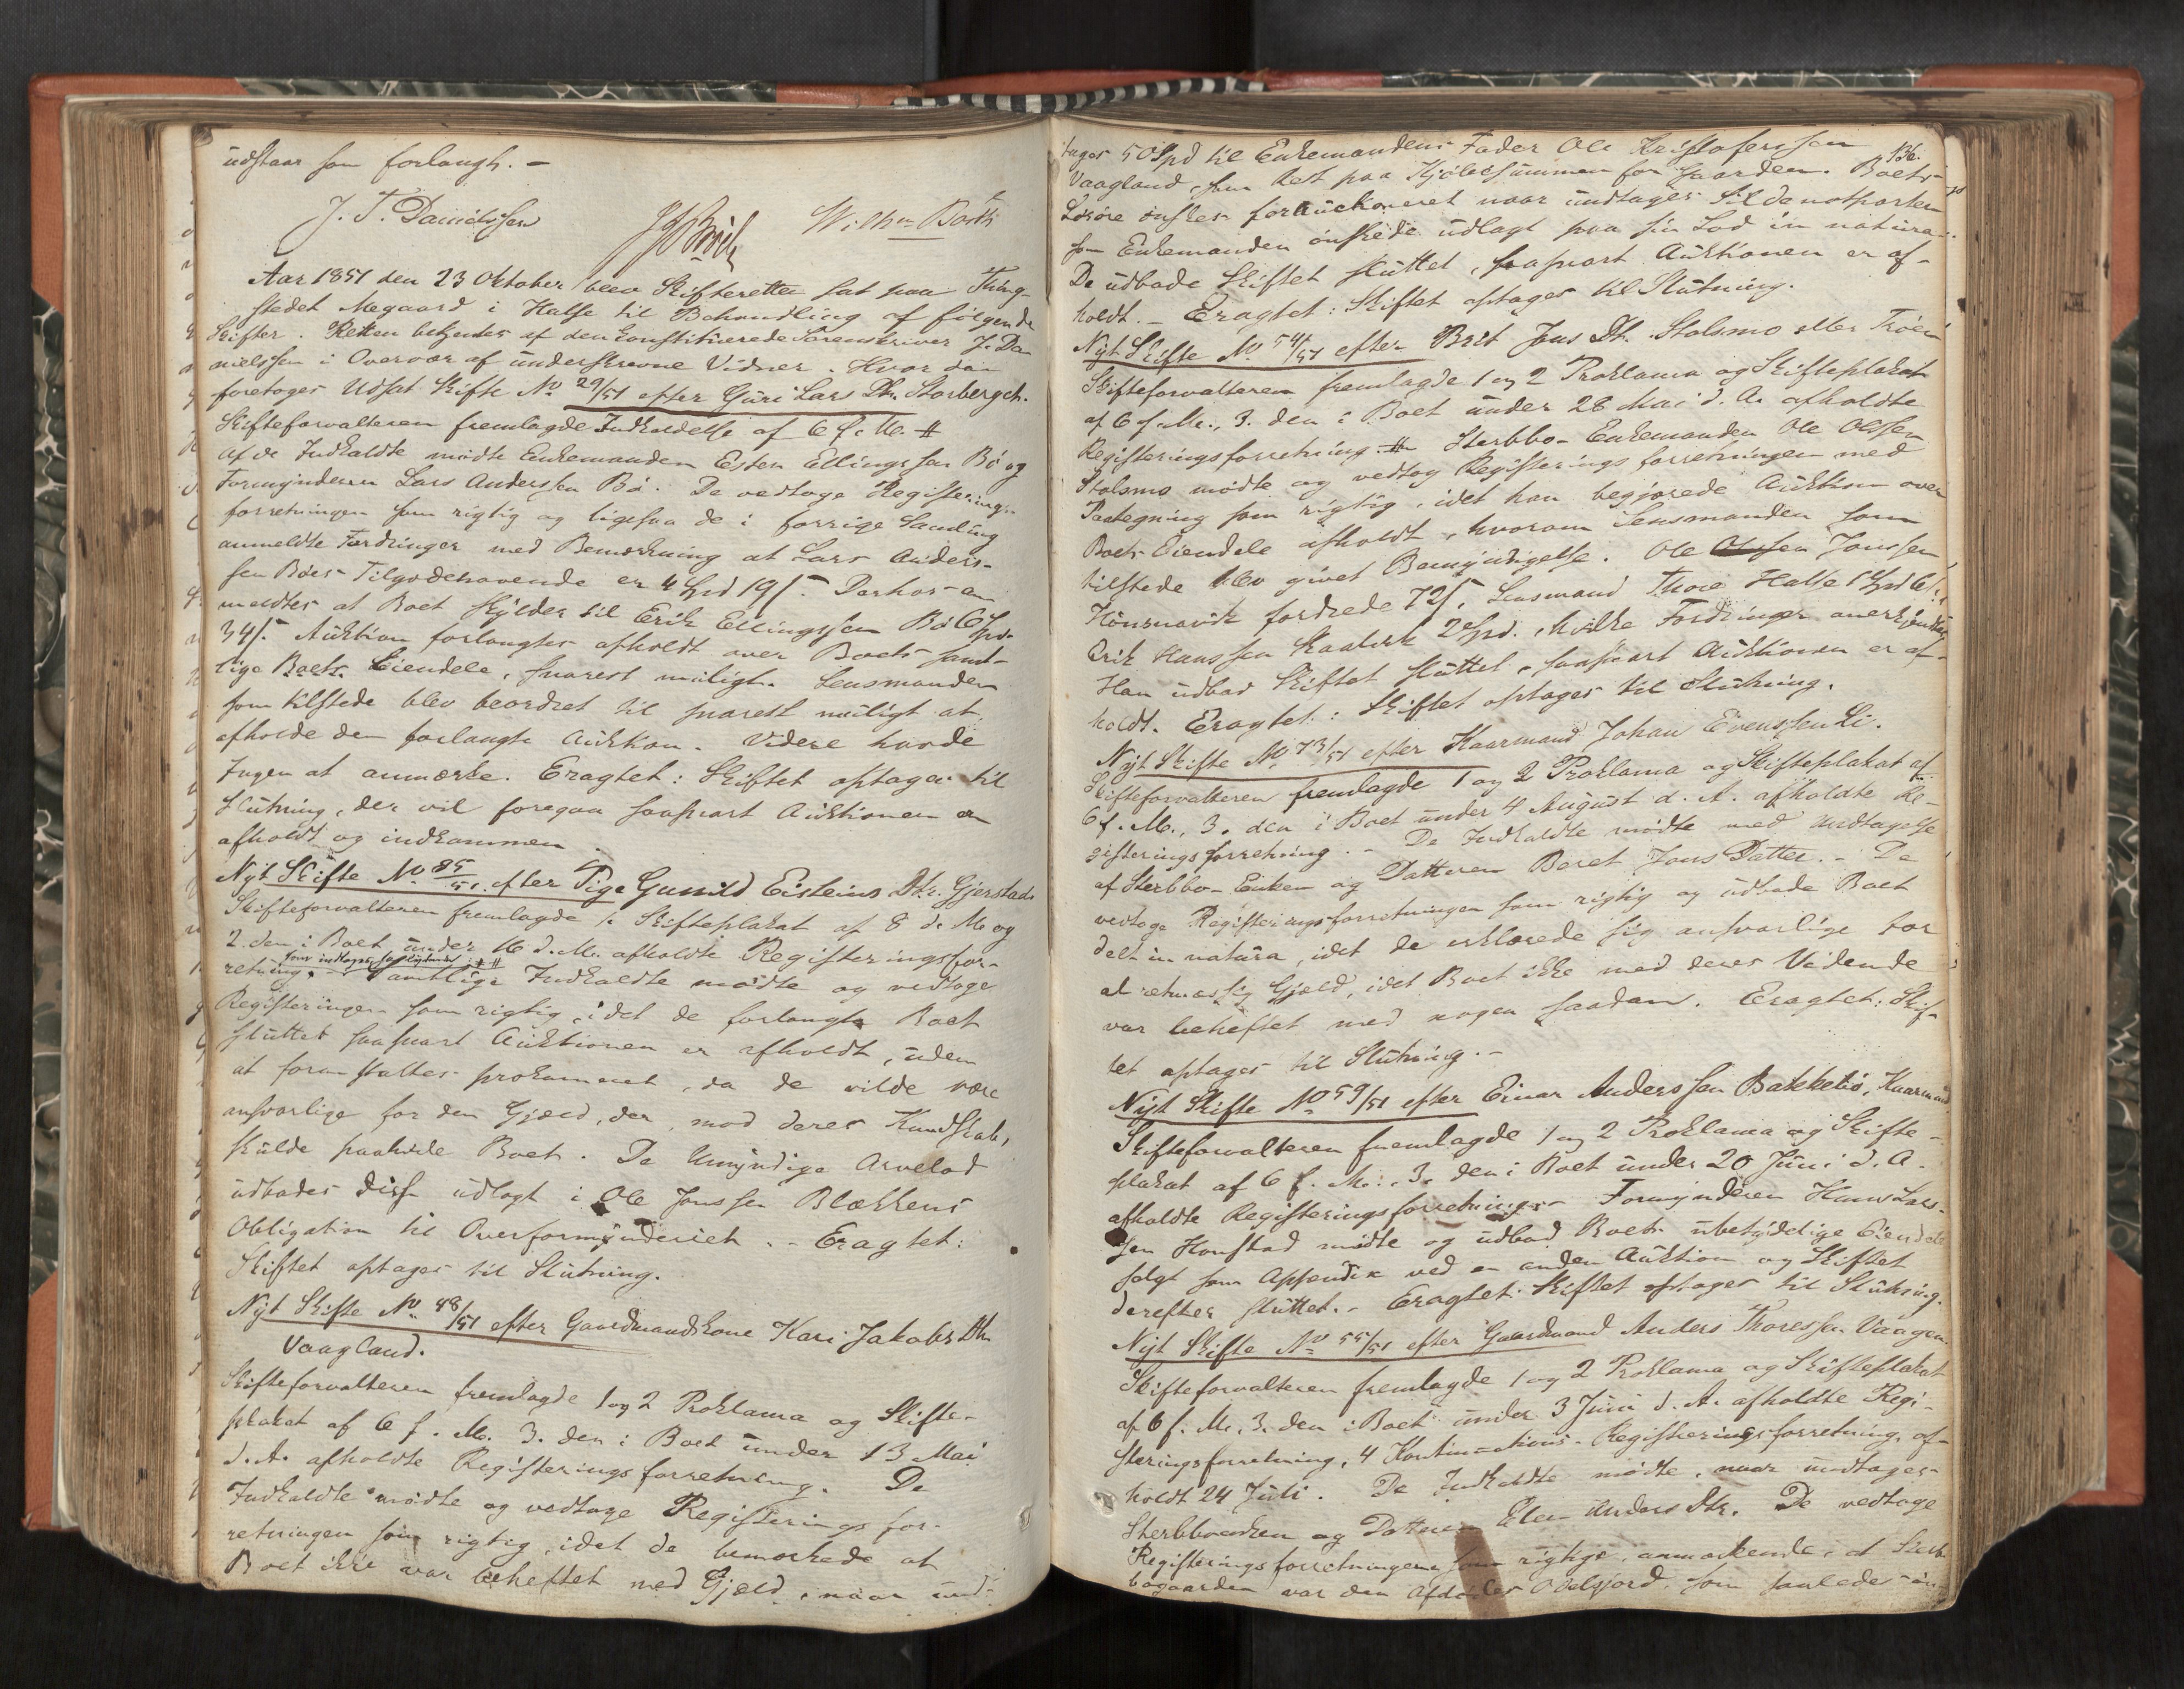 udstaar som forlangt. -
J. T. Danielssen
Wilhm Barth
Aar 1851 den 23 Oktober blev Skifteretten sat paa Thing-
stedet Megaard i Halse til Behandling af følgende
Skifter. Retten betjentes af den konstituerede Sorenskriver J. Da-
nielssen i Overvær af underskrevne Vidner. Hvor da
foretoges Udsat Skifte No 29/51 efter Guri Lars Dtr. Storberget.
Skifteforvalteren fremlagde Indkaldelse af 6 f. M. #
Af de Indkaldte mødte Enkemanden Esten Ellingssen Bø og
Formynderen Lars Anderssen Bø. De vedtoge Registerings-
forretningen som rigtig og ligesaa de i forrige Samling
anmeldte Fordringer med Bemærkning at Lars Anders-
sen Bøes Tilgodehavende er 4 Spd 19 s. Derhos an-
meldtes at Boet skylder til Erik Ellingssen Bø 6 Spd.
34 s. Auktion forlangtes afholdt over Boets samt-
lige Boets Eiendele, snarest muligt. Lensmanden
som tilstede blev beordret til snarest muligt at
afholde den forlangte Auktion. Videre havde
Ingen at anmærke. Eragtet: Skiftet optages til
Slutning, der vil foregaa saasnart Auktionen er
afholdt og indkommen
Nyt Skifte No 85/51 efter Pige Gunild Eisteins Dtr. Gjerstad
Skifteforvalteren fremlagde 1. Skifteplakat af 8 d. M. og
2. den i Boet under 16 d. M. afholdte Registeringsfor-
retning. - Samtlige Indkaldte mødte og vedtoge
Registeringen som rigtig, idet de forlangte Boet
sluttet saasnart Auktionen er afholdt, uden
at foranstaltes proklameret, da de vilde være
ansvarlige for den Gjæld, der, mod deres Kundskab,
skulde paahvile Boet. De Umyndige Arvelod
udbades disse udlagt i Ole Jonssen Blækkens
Obligation til Overformynderiet. - Eragtet:
Skiftet optages til Slutning.
Nyt Skifte No 48/51 efter Gaardmandskone Kari Jakobs Dtr
Vaagland.
Skifteforvalteren fremlagde 1 og 2 Proklama og Skifte-
plakat af 6 f. M. 3. den i Boet under 13 Mai
d. A. afholdte Registeringsforretning. De
Indkaldte mødte og vedtoge Registeringsfor-
retningen som rigtig, idet de bemærkede at
Boet ikke var beheftet med Gjæld, naar und-
136.
tages 50 Spd til Enkemandens Fader Ole Kristoferssen
Vaagland, som Rest paa Kjøbesummen for Gaarden. Boets
Løsøre ønskes forauktioneret naar undtages Sildenotparten
som Enkemanden ønskede udlagt paa sin Lod in natura.
De udbade Skiftet sluttet, saasnart Auktionen er af-
holdt. - Eragtet: Skiftet optages til Slutning.
Nyt Skifte No 54/51 efter Brit Jens Dtr. Stolsmo eller Trøen
Skifteforvalteren fremlagde 1 og 2 Proklama og Skifteplakat
af 6 f. M., 3. den i Boet under 28 Mai d. A. afholdte
Registeringsforretning. # Sterbbo-Enkemanden Ole Olssen
Stolsmo mødte og vedtog Registeringsforretningen med
Paategning som rigtig, idet han begjærede Auktion over
Boets Eiendele afholdt, hvorom Lensmanden som
tilstede blev givet Bemyndigelse. Ole Jonssen
Hønsnavik fordrede 72 s, Lensmand Thore Halse 1 Spd 6 s.
Erik Hanssen Kaalvik 2 Spd. hvilke Fordringer anerkjendtes
Han udbad Skiftet sluttet, saasnart Auktionen er af-
holdt. Eragtet: Skiftet optages til Slutning.
Nyt Skifte No 73/51 efter Kaarmand Johan Evenssen Li.
Skifteforvalteren fremlagde 1 og 2 Proklama og Skifteplakat af
6 f. M., 3. den i Boet under 4 August d. A. afholdte Re-
gisteringsforretning. - De Indkaldte mødte med Undtagelse
af Sterbbo-Enken og Datteren Beret Jons Datter. - De
vedtoge Registeringsforretningen som rigtig og udbade Boet
delt in natura, idet de erklærede sig ansvarlige for
al retmæssig Gjæld, idet Boet ikke med deres Vidende
var beheftet med nogen saadan. Eragtet: Skif-
tet optages til Slutning. -
Nyt Skifte No 59/51 efter Einar Anderssen Bakkebø, Kaarmand
Skifteforvalteren fremlagde 1 og 2 Proklama og Skifte-
plakat af 6 f. M., 3. den i Boet under 20 Juni d. A.
afholdte Registeringsforretning. - Formynderen Hans Lars-
sen Honstad mødte og udbad Boets ubetydelige Eiendele
solgt som Appendix ved en anden Auktion og Skiftet
derefter sluttet. - Eragtet: Skiftet optages til Slutning.
Nyt Skifte No 55/51 efter Gaardmand Anders Thoressen Vaagen.
Skifteforvalteren fremlagde 1 og 2 Proklama og Skifteplakat
af 6 f. M., 3. den i Boet under 3 Juni d. A. afholdte Regi-
steringsforretning, 4 Kontinuations-Registeringsforretning, af-
holdt 24 Juli. De Indkaldte mødte, naar undtages
Sterbboenken og Datteren Elen Anders Dtr. De vedtoge
Registeringsforretningerne som rigtige, anmærkende, at Sterb-
bogaarden var den Afdødes Odelsjord, som saaledes øn-